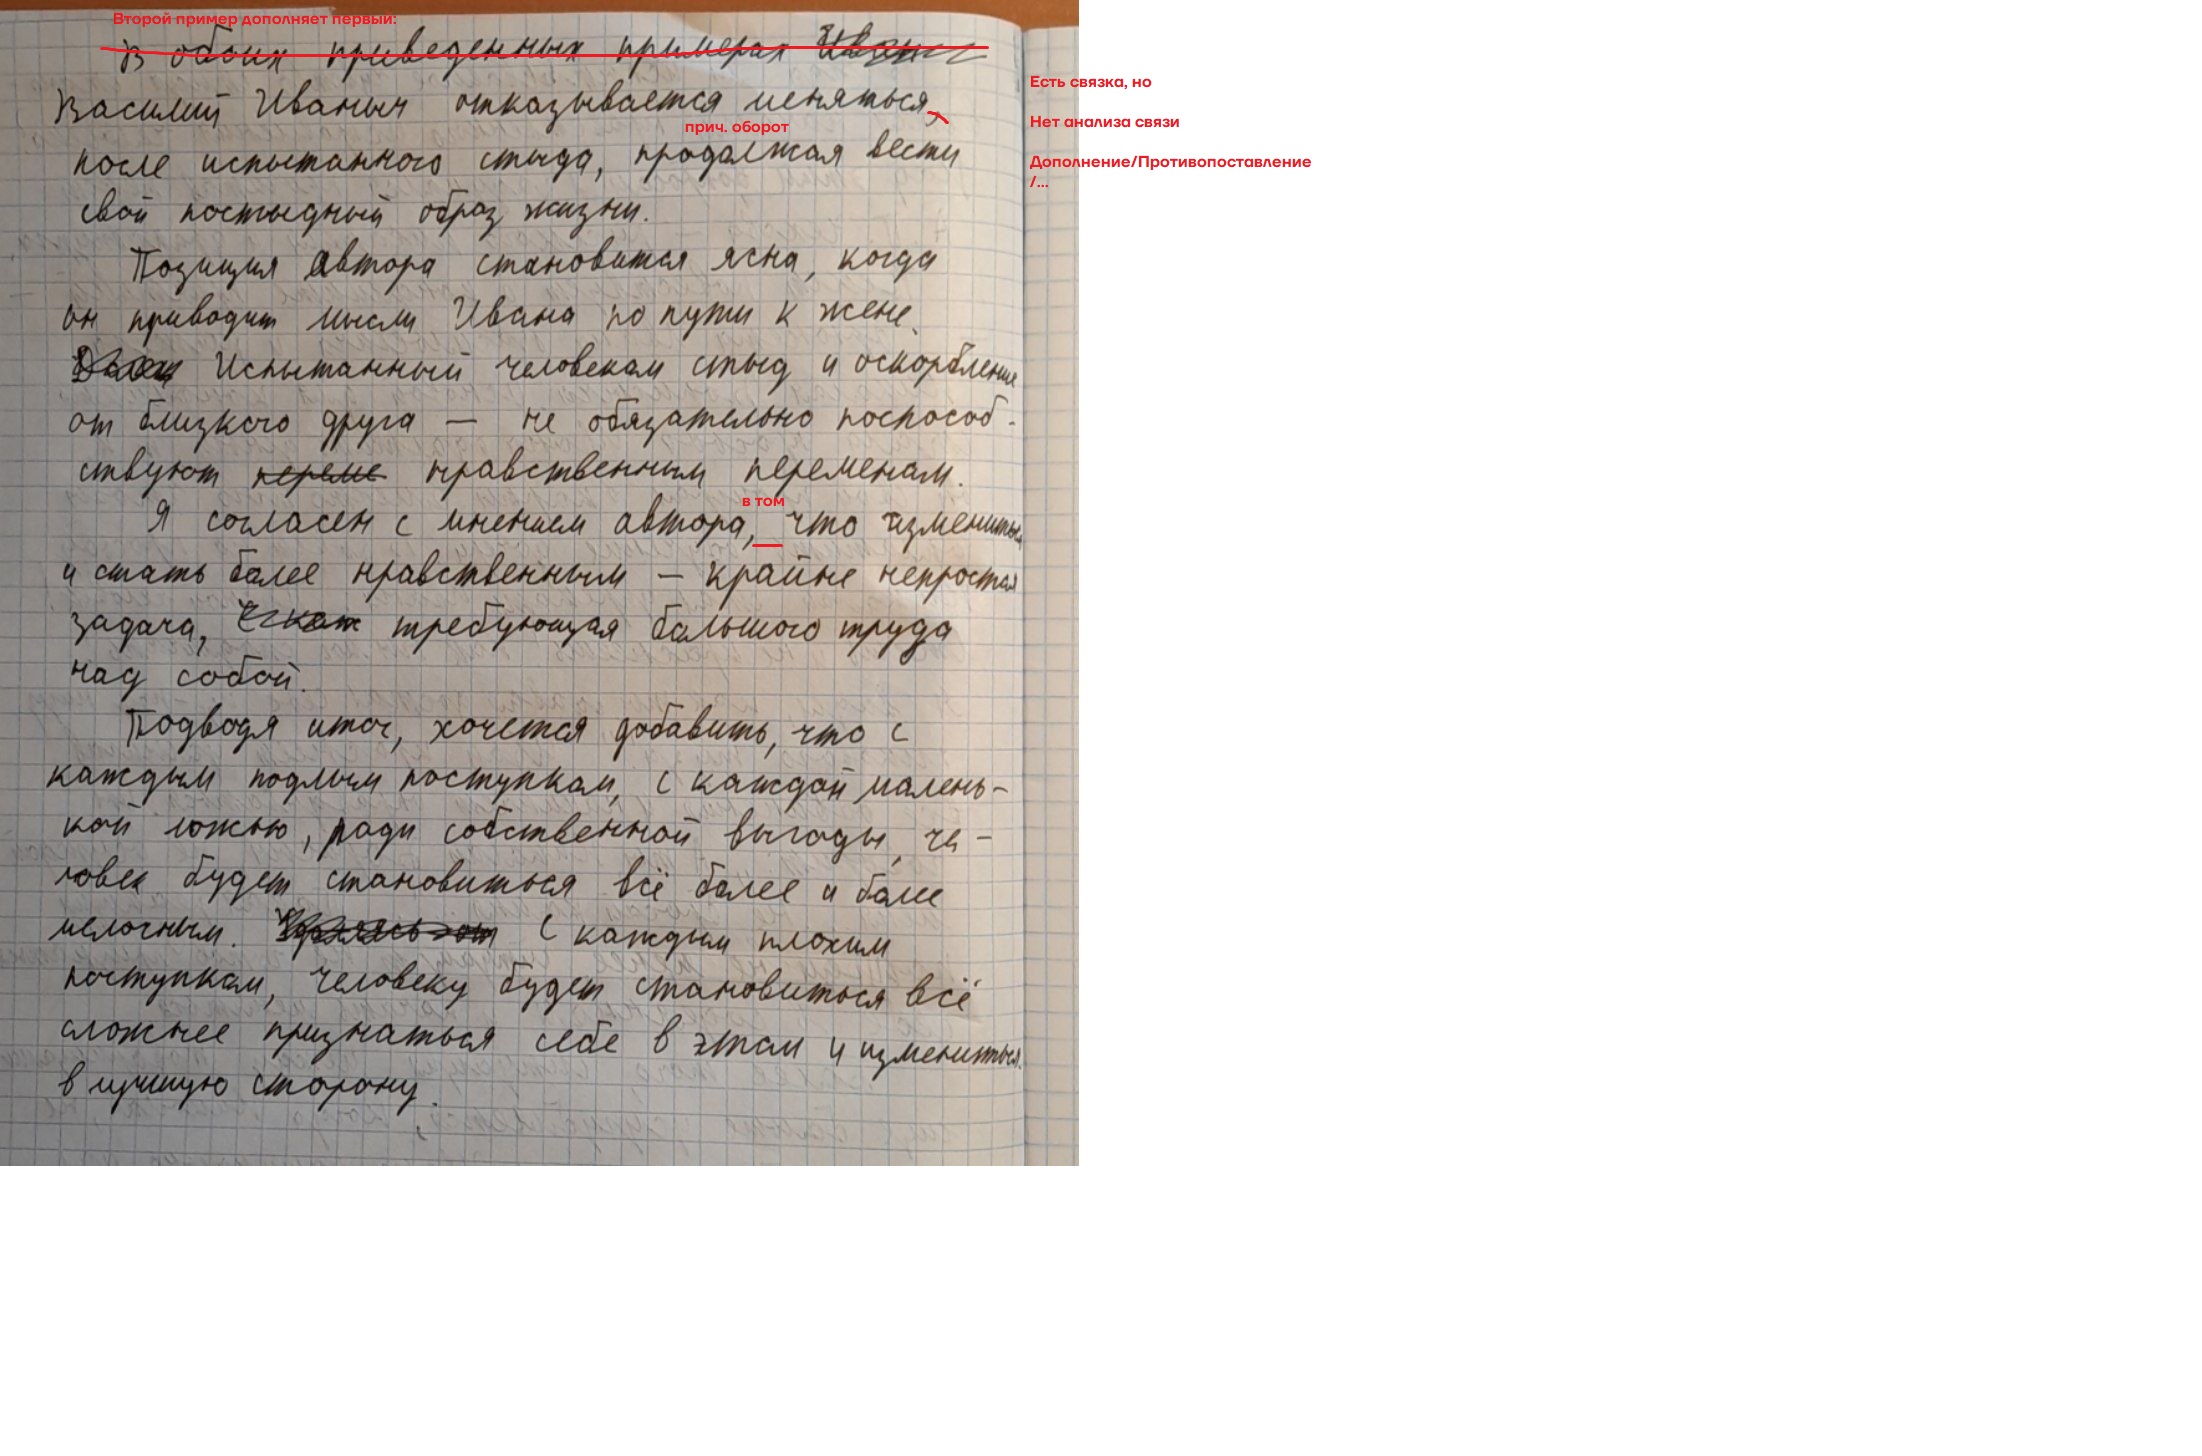 Второй пример дополняет первый:
В обоих приведенных примерах
Есть связка, но
Василий Иваныч отказывается меняться,
Нет анализа связи
прич. оборот
после испытанного стыда, продолжая вести
Дополнение/Противопоставление
/...
свой постыдный образ жизни.
Позиция автора становится ясна, когда
он приводит мысли Ивана по пути к жене.
Испытанный человеком стыд и оскорбление
от близкого друга — не обязательно поспособ-
ствуют переме нравственным переменам.
в том
Я согласен с мнением автора, что измениться
и стать более нравственным – крайне непростая
задача, требующая большого труда
над собой.
Подводя итог, хочется добавить, что с
каждым подлым поступком, с каждой малень-
кой ложью, ради собственной выгоды, че-
ловек будет становиться всё более и более
мелочным. С каждым плохим
поступком, человеку будет становиться всё
сложнее признаться себе в этом и измениться
в лучшую сторону.